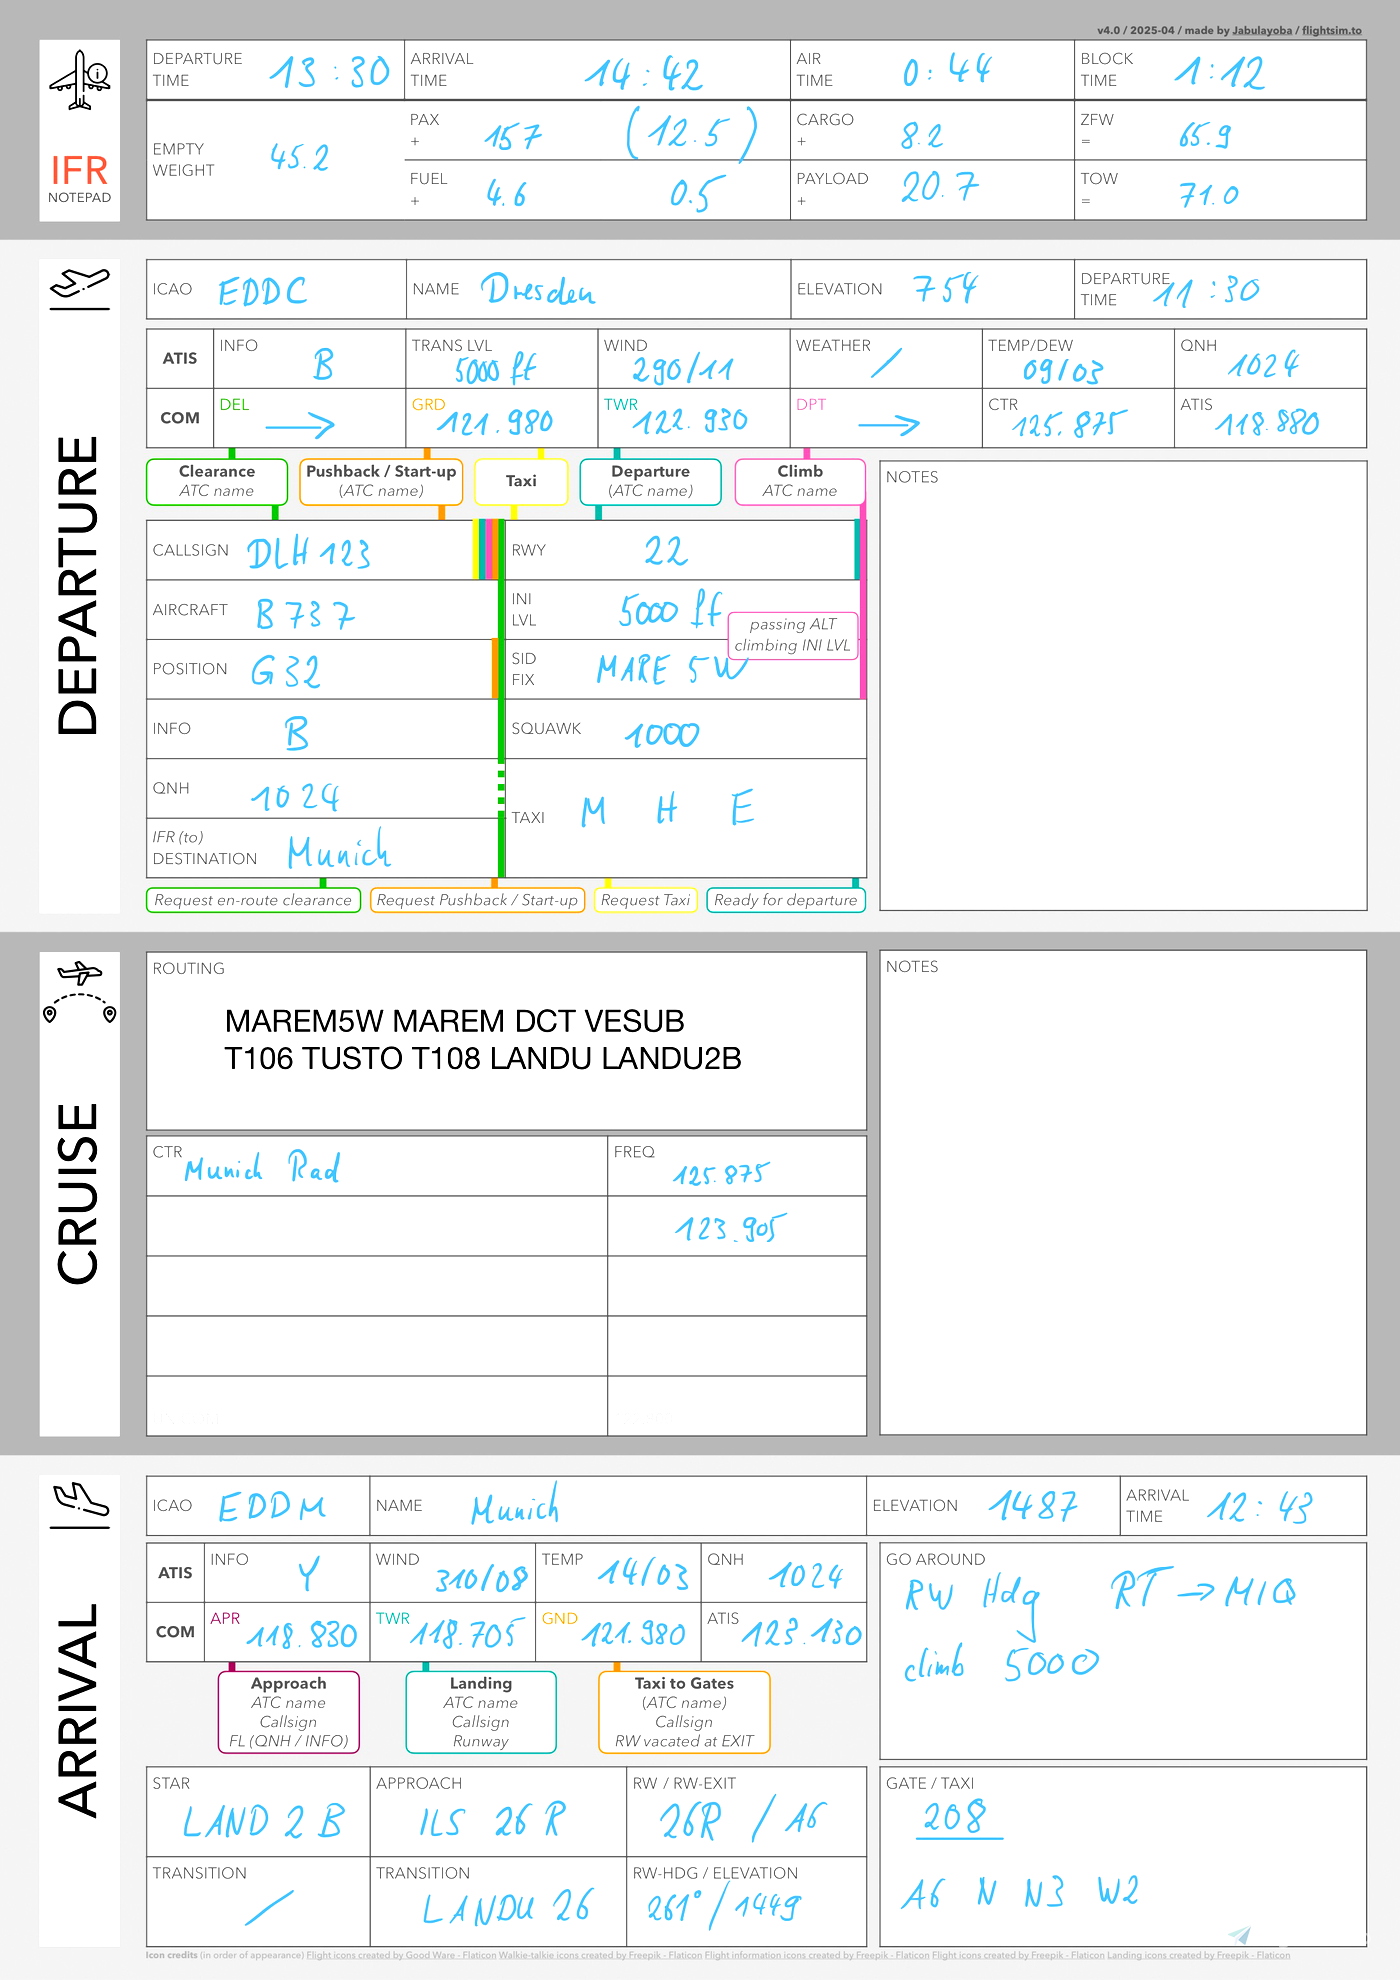 v4.0 / 2025-04 / made by Jabulayoba / flightsim.to
IFR
NOTEPAD
DEPARTURE TIME 13:30 ARRIVAL TIME 14:42 AIR TIME 0:44 BLOCK TIME 1:12
EMPTY WEIGHT 45.2
PAX + 157 (12.5) CARGO + 8.2 ZFW = 65.9
FUEL + 4.6 0.5 PAYLOAD + 20.7 TOW = 71.0
DEPARTURE
ICAO EDDC NAME Dresden ELEVATION 754 DEPARTURE TIME 11:30
ATIS INFO B TRANS LVL 5000 ft WIND 290/11 WEATHER / TEMP/DEW 09/03 QNH 1024
COM DEL → GRD 121.980 TWR 122.930 DPT → CTR 125.875 ATIS 118.880
Clearance Pushback / Start-up Taxi Departure Climb
ATC name (ATC name) (ATC name) ATC name
NOTES
CALLSIGN DLH 123 RWY 22
AIRCRAFT B737 INI LVL 5000 ft
passing ALT
climbing INI LVL
POSITION G32 SID FIX MARE 5W
INFO B SQUAWK 1000
QNH 1024 TAXI M H E
IFR (to) DESTINATION Munich
Request en-route clearance Request Pushback / Start-up Request Taxi Ready for departure
CRUISE
ROUTING
MAREM5W MAREM DCT VESUB
T106 TUSTO T108 LANDU LANDU2B
NOTES
CTR Munich Rad FREQ 125.875
123.905
ARRIVAL
ICAO EDDM NAME Munich ELEVATION 1487 ARRIVAL TIME 12:43
ATIS INFO Y WIND 310/08 TEMP 14/03 QNH 1024
COM APR 118.830 TWR 118.705 GND 121.980 ATIS 123.130
GO AROUND
RW Hdg RT → MIQ
climb 5000
Approach Landing Taxi to Gates
ATC name ATC name (ATC name)
Callsign Callsign Callsign
FL (QNH / INFO) Runway RW vacated at EXIT
STAR LAND 2 B APPROACH ILS 26 R RW / RW-EXIT 26R / A6
TRANSITION / TRANSITION LANDU 26 RW-HDG / ELEVATION 261° / 1449
GATE / TAXI
208
A6 N N3 W2
Icon credits (in order of appearance) Flight icons created by Good Ware - Flaticon Walkie-talkie icons created by Freepik - Flaticon Flight information icons created by Freepik - Flaticon Flight icons created by Freepik - Flaticon Landing icons created by Freepik - Flaticon